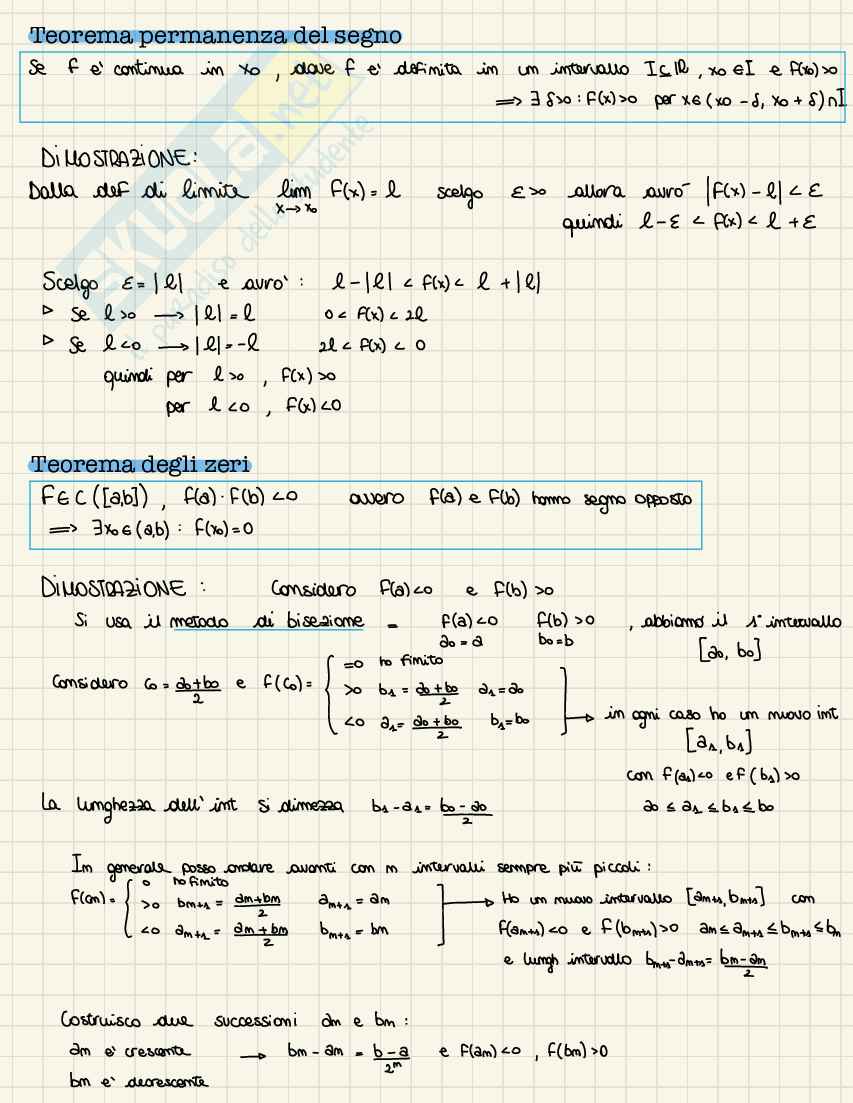 Teorema permanenza del segno
Se f e' continua in x₀ , dove f e' definita in un intervallo I⊆ℝ , x₀ ∈ I e f(x₀)>0
⟹ ∃ δ>0 : f(x)>0 per x∈(x₀ - δ, x₀ + δ)∩I
DIMOSTRAZIONE:
Dalla def di limite lim x→x₀ f(x) = l scelgo ε>0 allora avro' |f(x) - l| < ε
quindi l-ε < f(x) < l + ε
Scelgo ε= |l| e avro' : l-|l| < f(x) < l + |l|
▹ Se l>0 ⟶ |l| = l 0 < f(x) < 2l
▹ Se l<0 ⟶ |l| = -l 2l < f(x) < 0
quindi per l>0 , f(x)>0
per l<0 , f(x)<0
Teorema degli zeri
f∈C([a,b]) , f(a)·f(b)<0 ovvero f(a) e f(b) hanno segno opposto
⟹ ∃x₀∈(a,b) : f(x₀)=0
DIMOSTRAZIONE : Considero f(a)<0 e f(b)>0
Si usa il metodo di bisezione = f(a)<0 f(b)>0 , abbiamo il 1° intervallo
a₀=a b₀=b [a₀, b₀]
Considero c₀ = (a₀+b₀)/2 e f(c₀) = { =0 ho finito
>0 b₁ = (a₀+b₀)/2 a₁=a₀
<0 a₁ = (a₀+b₀)/2 b₁=b₀
→ in ogni caso ho un nuovo int
[a₁,b₁]
con f(a₁)<0 e f(b₁)>0
La lunghezza dell' int si dimezza b₁-a₁ = (b₀-a₀)/2 a₀ ≤ a₁ ≤ b₁ ≤ b₀
In generale posso andare avanti con n intervalli sempre più piccoli :
f(cn) = { 0 ho finito
>0 bn+1 = (an+bn)/2 an+1 = an
<0 an+1 = (an+bn)/2 bn+1 = bn
→ Ho un nuovo intervallo [an+1, bn+1] con
f(an+1)<0 e f(bn+1)>0 an ≤ an+1 ≤ bn+1 ≤ bn
e lungh intervallo bn+1-an+1 = (bn-an)/2
Costruisco due successioni an e bn :
an e' crescente ⟶ bn - an = (b-a)/2ⁿ e f(an)<0 , f(bn)>0
bn e' decrescente
SKUOLA.net
il paradiso dello studente